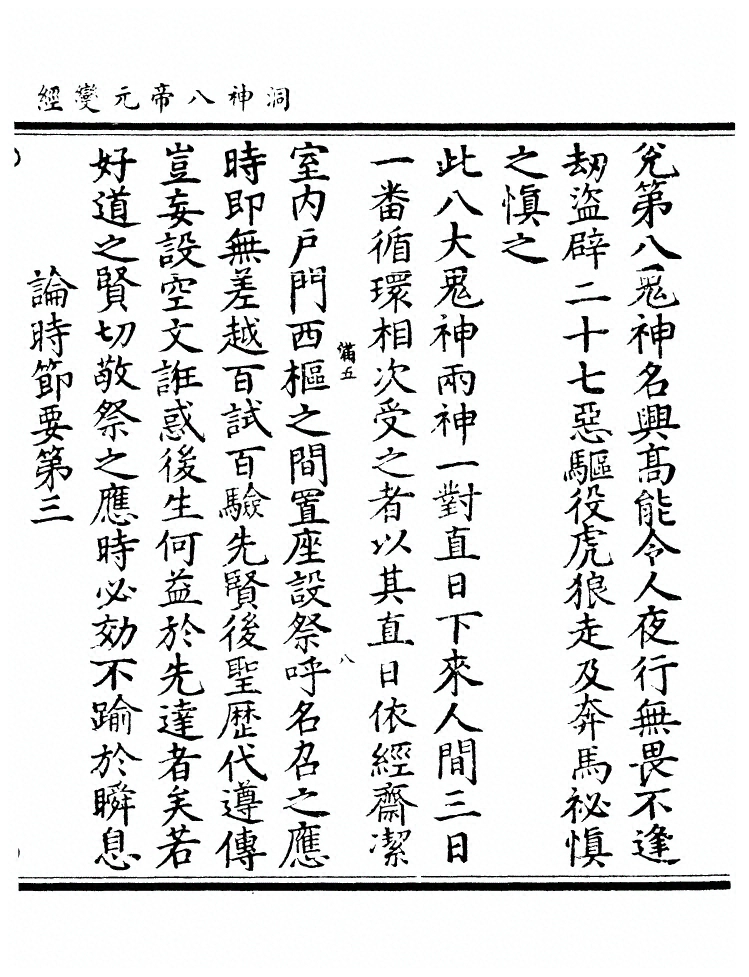 洞神八帝元變經
兌第八䰠神名興髙能令人夜行無畏不逢
劫盜辟二十七惡驅役虎狼走及奔馬祕慎
之慎之
此八大䰠神兩神一對直日下來人間三日
一番循環相次受之者以其直日依經齋潔
滿五
八
室内戸門西樞之間置座設祭呼名召之應
時即無差越百試百驗先賢後聖歷代遵傳
豈妄設空文誑惑後生何益於先達者矣若
好道之賢切敬祭之應時必効不踰於瞬息
論時節要第三